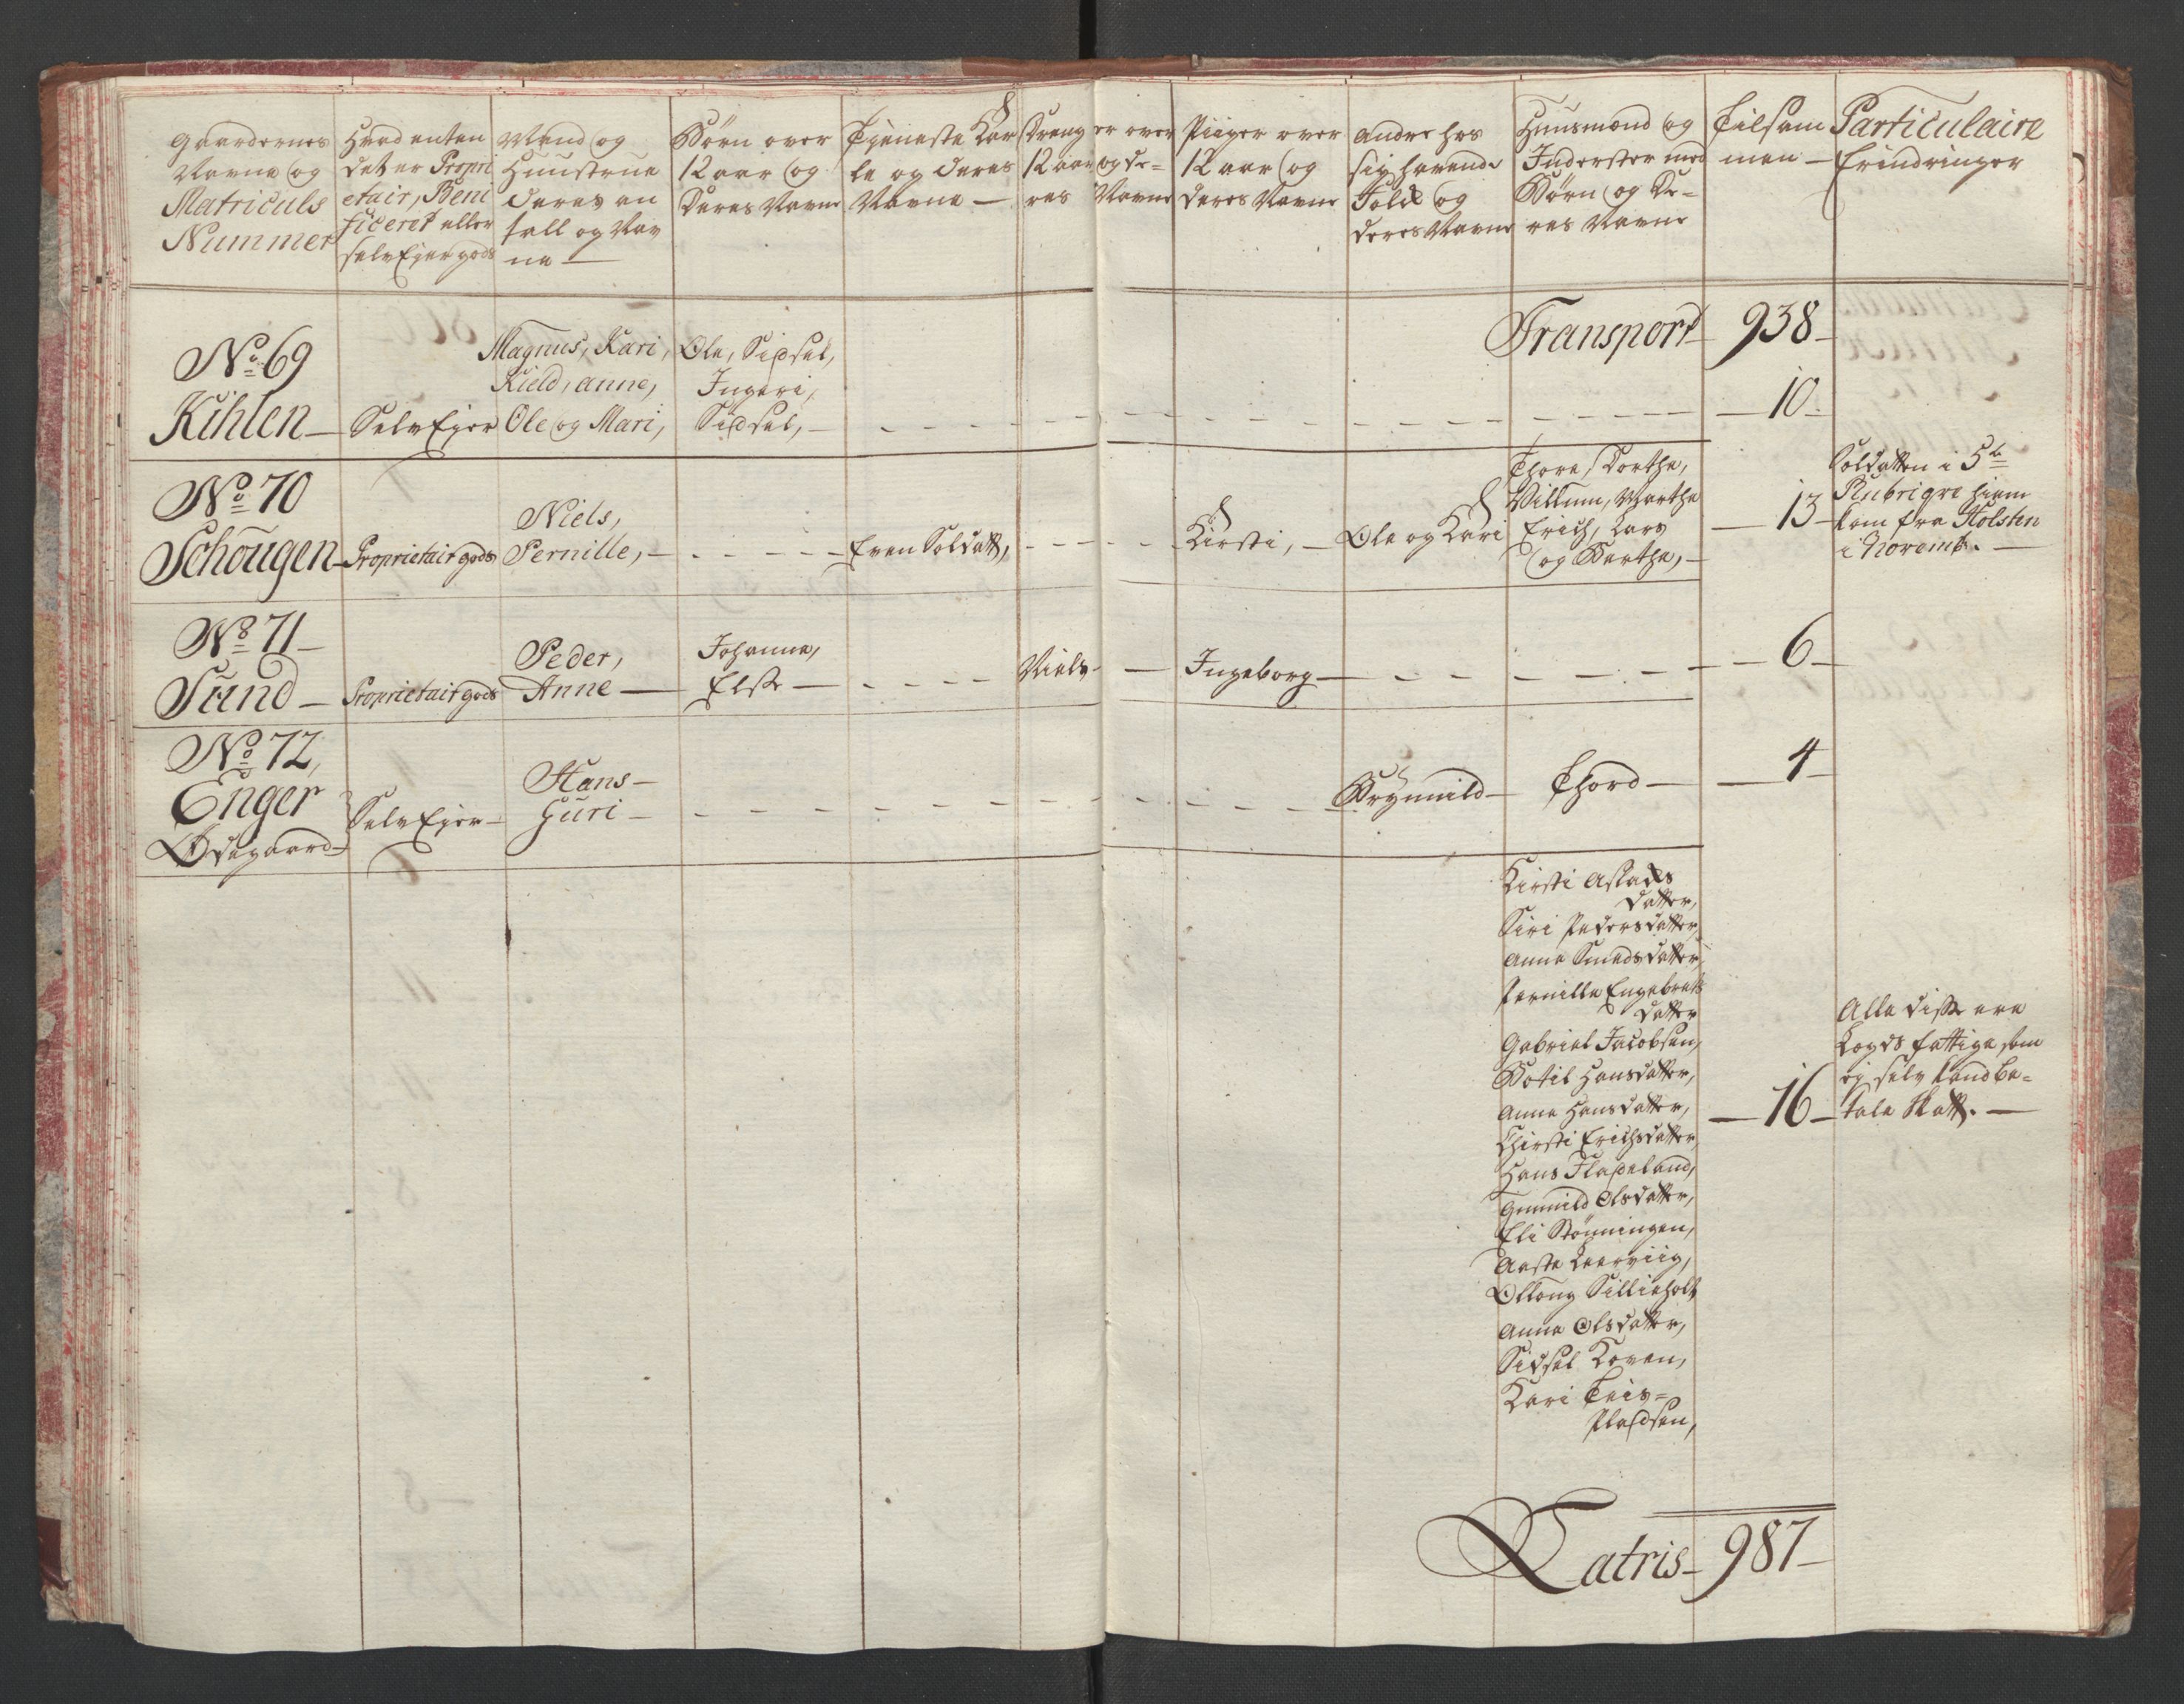 Gaardernes
Navne og
Matriculs
Nummer
Hvad enten
det er Propri
etair, Beni
ficeret eller
selv Ejer gods
Mand og
Huustrue
deres an
tall og Nav
ne —
Børn over
12 aar og
Deres Navne
Tjeneste Kar
le og deres
Navne —
Dreng er over
12 aar og de-
res Navne
Piiger over
12 aar og
deres Navne
Andre hos
sig havende
Folck og
deres Navne
Huusmænd og
Inderster med
Børn og De-
res Navne
Tilsam
men —
Particulaire
Erindringer
Transport 938
No 69
Kihlen — Selv Ejer
Magnus, Kari,
Kield, Anne,
Ole og Mari,
Ole, Sidsel,
Ingeri,
Sidsel, —
— 10 —
No 70
Schougen — Proprietair gods
Niels,
Pernille, —
Even Soldatt,
Kirsti, —
Ole og Kari
Thore, Dorthe,
Villum, Marthe
Erich, Lars
og Berthe, —
— 13 —
Soldatten i 5te
Rubrique hiem
kom fra Holsten
i Novemb. —
No 71 —
Sand — Proprietair gods
Peder,
Anne —
Johanne,
Else —
Niels —
Ingeborg —
— 6 —
No 72,
Enger
Ødegaard —
Selv Ejer —
Hans —
Guri —
Brynnild —
Thord —
— 4 —
Kirsti Aslacks
datter,
Siri Pedersdatter,
Anne Smedsdatter,
Pernille Engebrets
datter
Gabriel Jacobsen,
Botil Hansdatter,
Anne Hansdatter,
Chirsti Erichsdatter,
Hans Flageland,
Gunnild Olsdatter,
Eli Stønningen,
Aaste Leerviig,
Olloug Sillieholt
Anne Olsdatter,
Sidsel Koven,
Kari Teis-
Pladsen,
— 16 —
Alle disse ere
Lægds fattige, som
ej selv kand be-
tale Skatt. —
Latris — 987 —